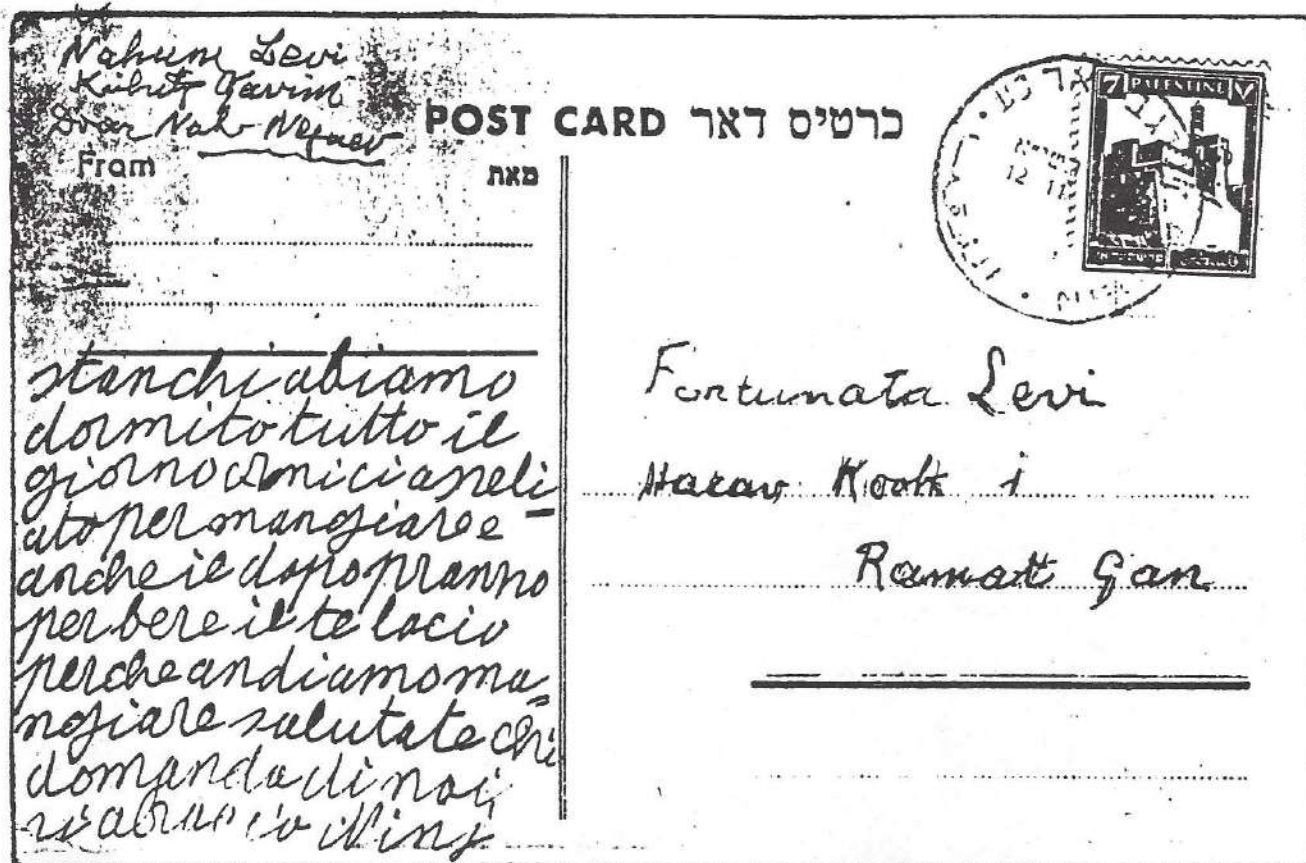 Nahum Levi
Kibutz Javim
Doar Nah- Negaev
POST CARD כרטיס דאר
From מאת
7 PALESTINE
12 11
stanchi abiamo
dormito tutto il
giorno amici a sveli
ato per mangiare e
anche il dopo pranno
per bere il te lacio
perche andiamo ma-
ngiare salutate chi
domanda di noi
Fortunata Levi
Harav Kook 1
Ramatt Gan